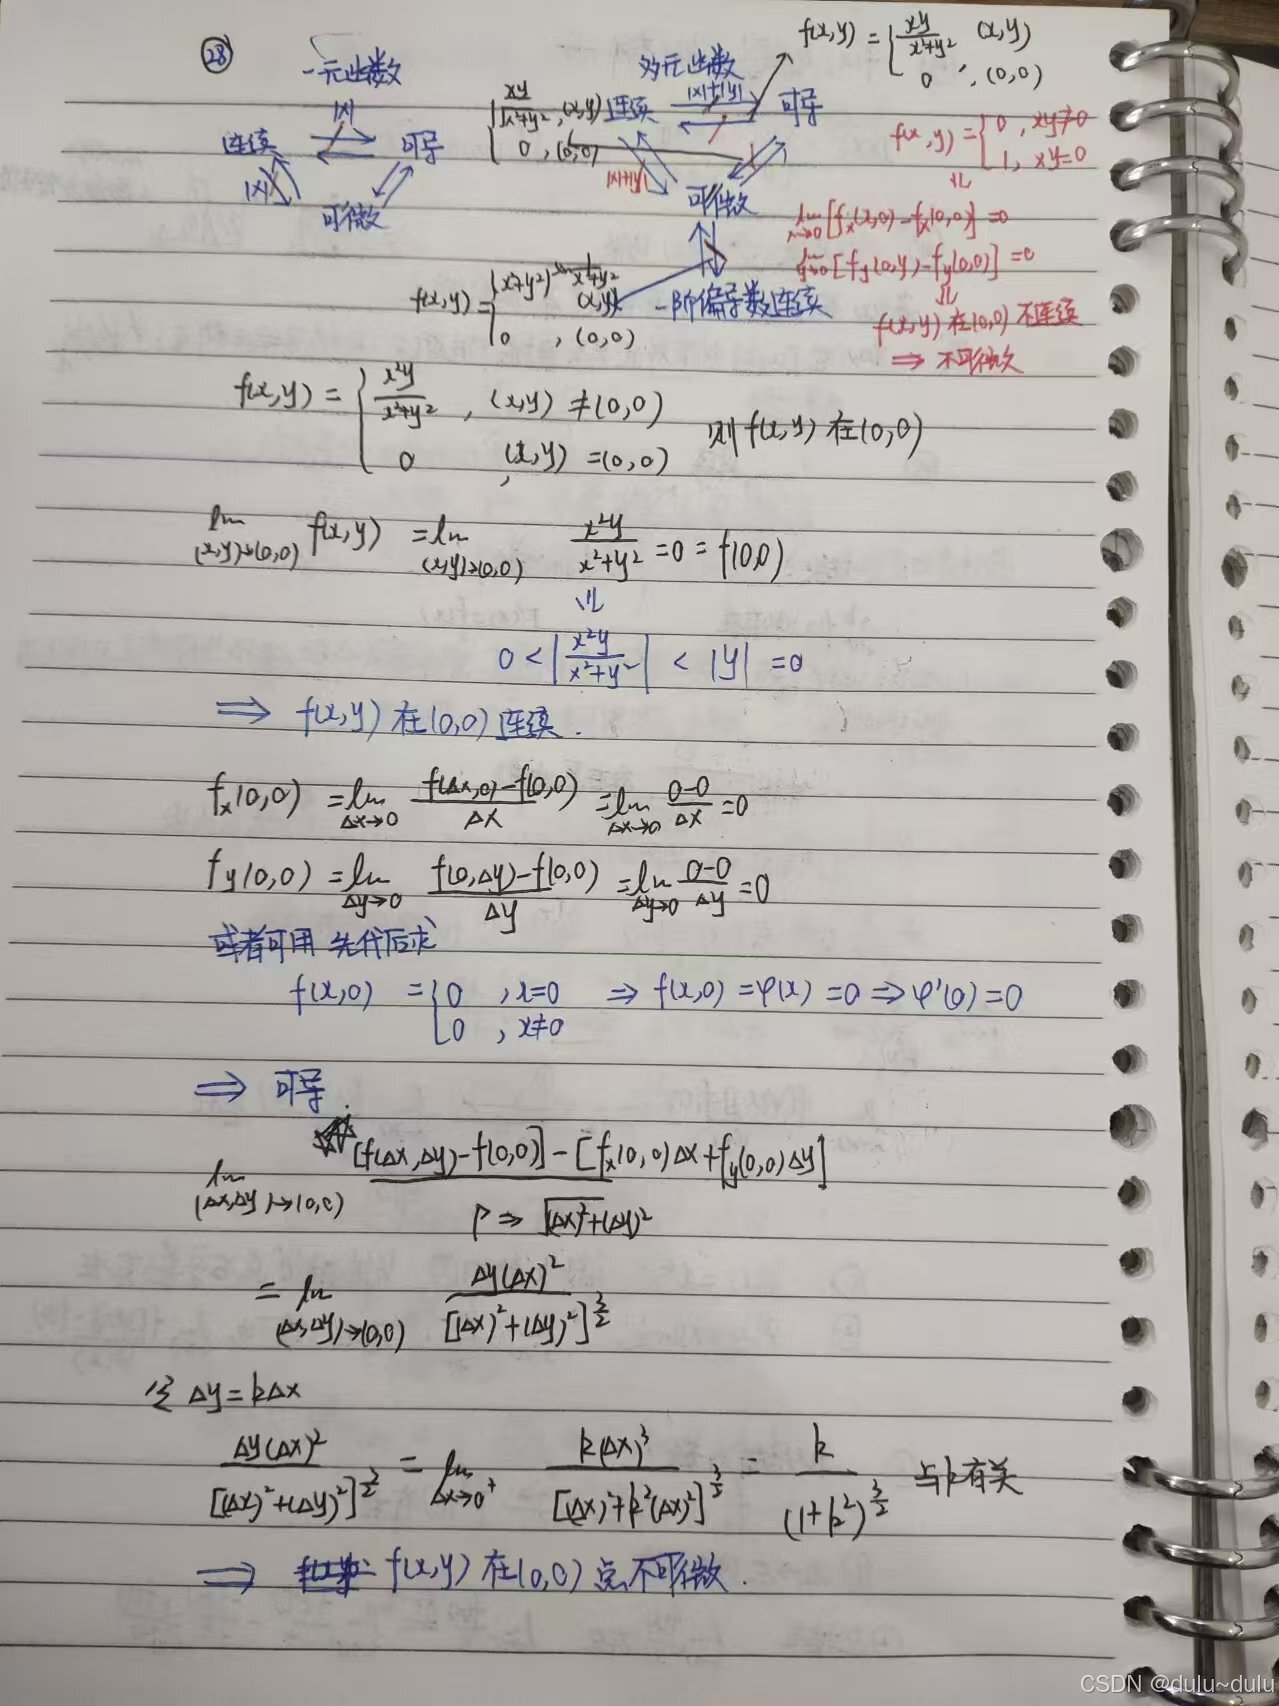 28
一元函数
多元函数
f(x,y) = { xy/(x²+y²) , (x,y)
0 , (0,0)
连续 |x| 可导
|x|
可微
{ xy/√(x²+y²) , (x,y)
0 , (0,0)
连续 |x|+|y| 可导
|x|+|y|
可微
f(x,y) = { 0 , xy≠0
1 , xy=0
⇓
lim x→0 [fx(x,0)-fx(0,0)] =0
lim y→0 [fy(0,y)-fy(0,0)] =0
⇓
f(x,y)在(0,0)不连续
⇒ 不可微
一阶偏导数连续
f(x,y)= { (x²+y²) 1/(x²+y²) (x,y)
0 , (0,0)
f(x,y) = { x²y/(x²+y²) , (x,y) ≠(0,0)
0 , (x,y) =(0,0)
则 f(x,y) 在(0,0)
lim (x,y)→(0,0) f(x,y) = lim (x,y)→(0,0) x²y/(x²+y²) =0 = f(0,0)
⇓
0 < |x²y/(x²+y²)| < |y| =0
⇒ f(x,y) 在(0,0)连续.
fx(0,0) = lim Δx→0 (f(Δx,0)-f(0,0))/Δx = lim Δx→0 (0-0)/Δx =0
fy(0,0) = lim Δy→0 (f(0,Δy)-f(0,0))/Δy = lim Δy→0 (0-0)/Δy =0
或者可用 先代后求
f(x,0) = { 0 , x=0 ⇒ f(x,0) =φ(x) =0 ⇒ φ'(0) =0
0 , x≠0
⇒ 可导.
lim (Δx,Δy)→(0,0) ([f(Δx,Δy)-f(0,0)] - [fx(0,0)Δx+fy(0,0)Δy])/(ρ ⇒ √((Δx)²+(Δy)²))
= lim (Δx,Δy)→(0,0) Δy(Δx)²/[(Δx)²+(Δy)²]^(3/2)
令 Δy=kΔx
Δy(Δx)²/[(Δx)²+(Δy)²]^(3/2) = lim Δx→0⁺ k(Δx)³/[(Δx)²+k²(Δx)²]^(3/2) = k/(1+k²)^(3/2) 与k有关
⇒ f(x,y) 在(0,0) 点不可微.
CSDN @dulu~dulu